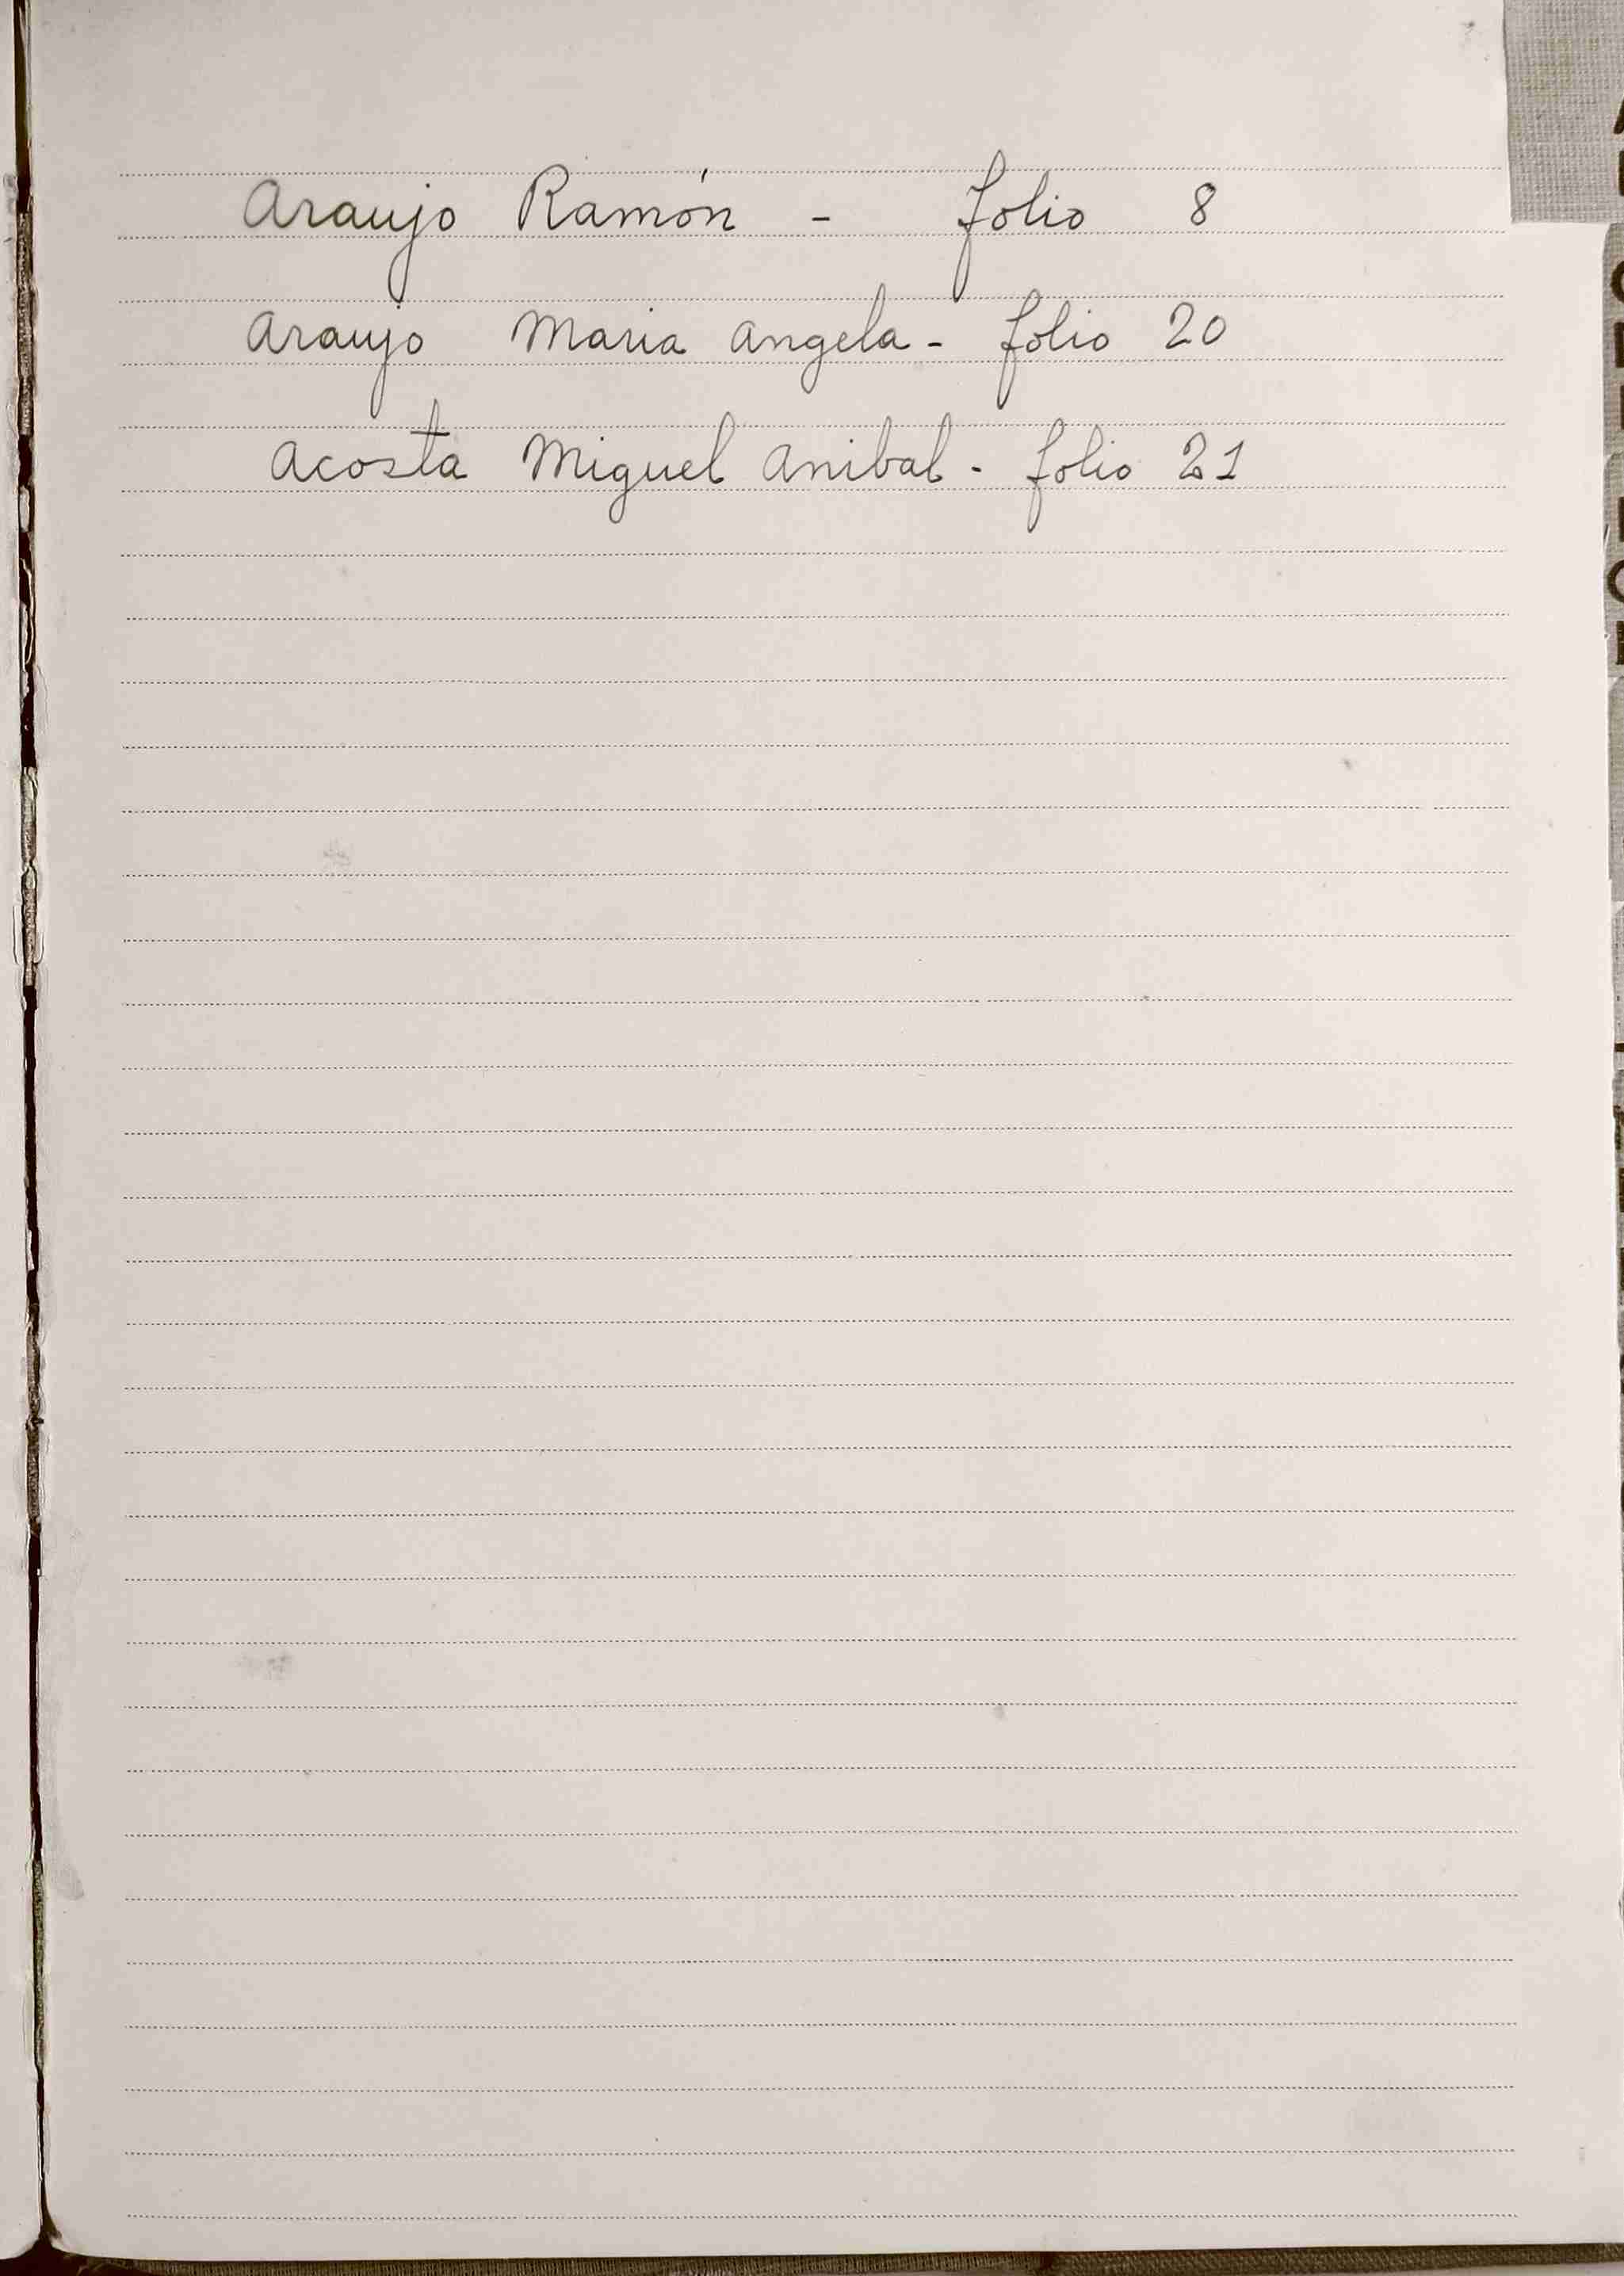 Araujo Ramón - folio 8
Araujo Maria Angela - folio 20
Acosta Miguel Anibal - folio 21